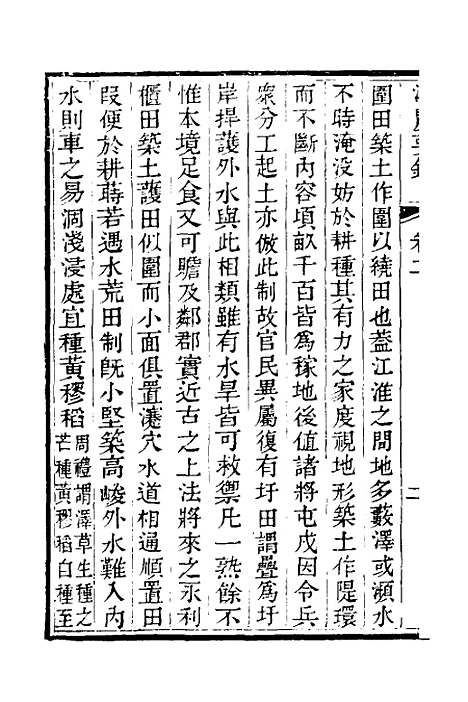 卷二
二
圍田築土作圍以繞田也葢江淮之間地多藪澤或瀕水
不時淹没妨於耕種其有力之家度視地形築土作隄環
而不斷内容頃畝千百皆爲稼地後值諸將屯戍因令兵
衆分工起土亦倣此制故官民異屬復有圩田謂疊爲圩
岸捍護外水與此相類雖有水旱皆可救禦凡一熟餘不
惟本境足食又可贍及鄰郡實近古之上法將來之永利
櫃田築土護田似圍而小面俱置瀽穴水道相通順置田
段便於耕蒔若遇水荒田制既小堅築高峻外水難入内
水則車之易涸淺浸處宜種黃穋稻
周禮謂澤草生種之
芒種黃穋稻自種至